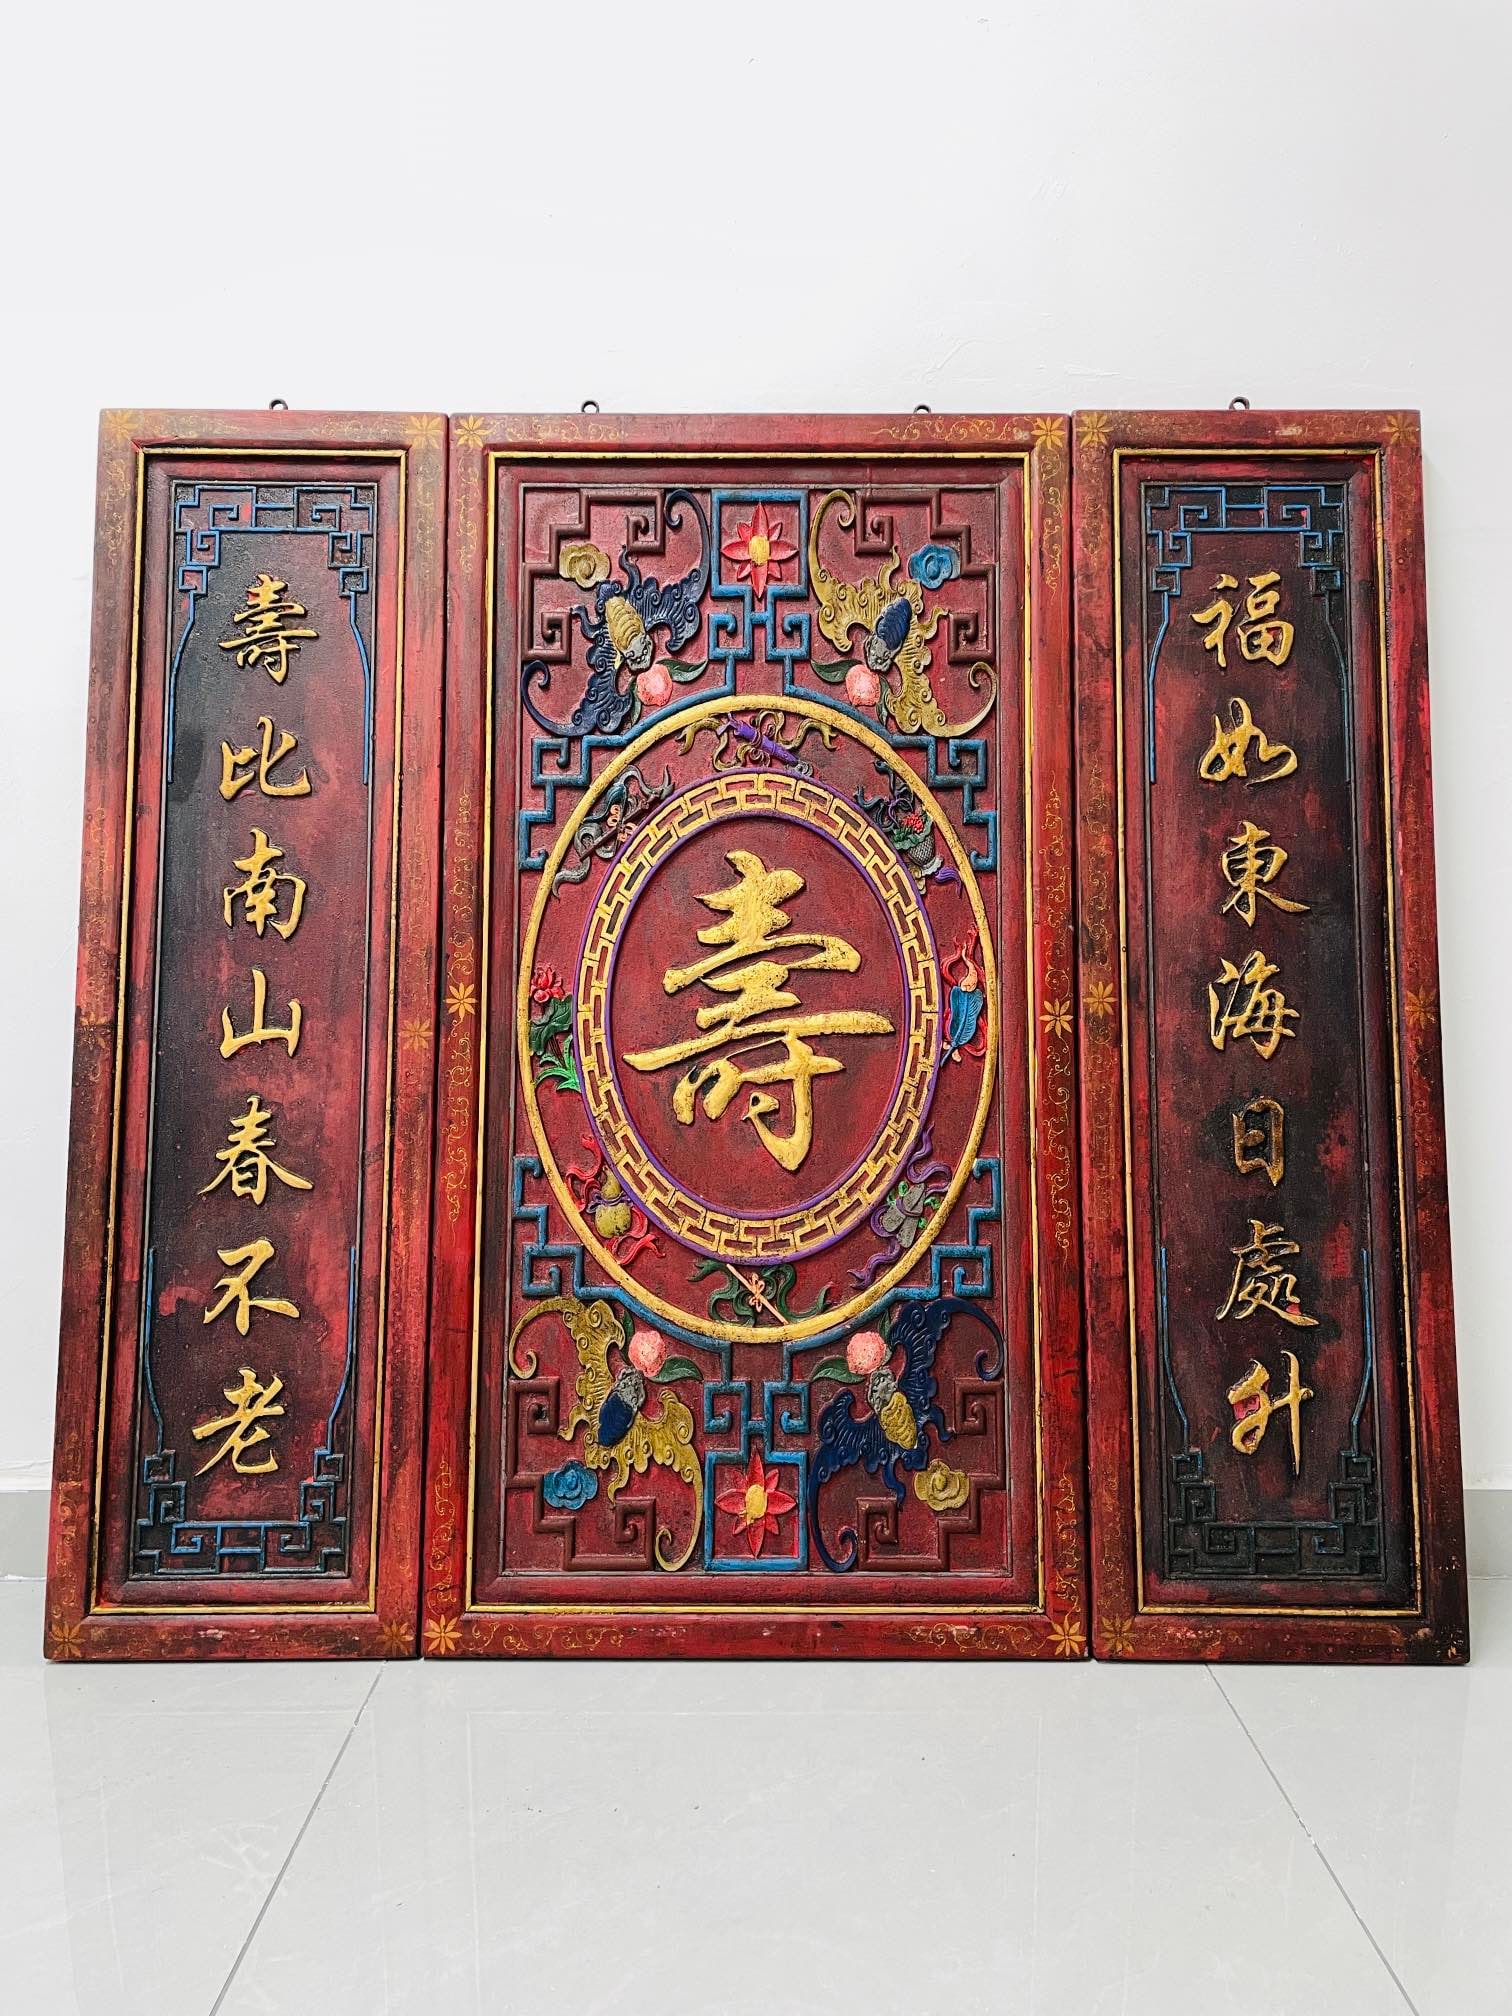 福如東海日處升
壽
壽比南山春不老